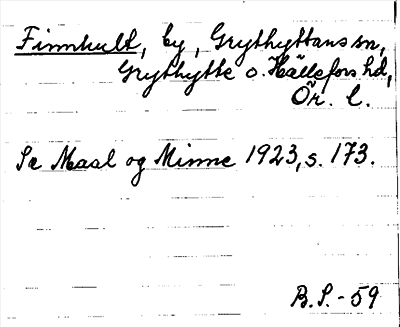 Finnhult, by, Grythyttans sn,
Grythytte o. Hällefors hd,
Ör. l.
Se Maal og Minne 1923, s. 173.
B. S. - 59